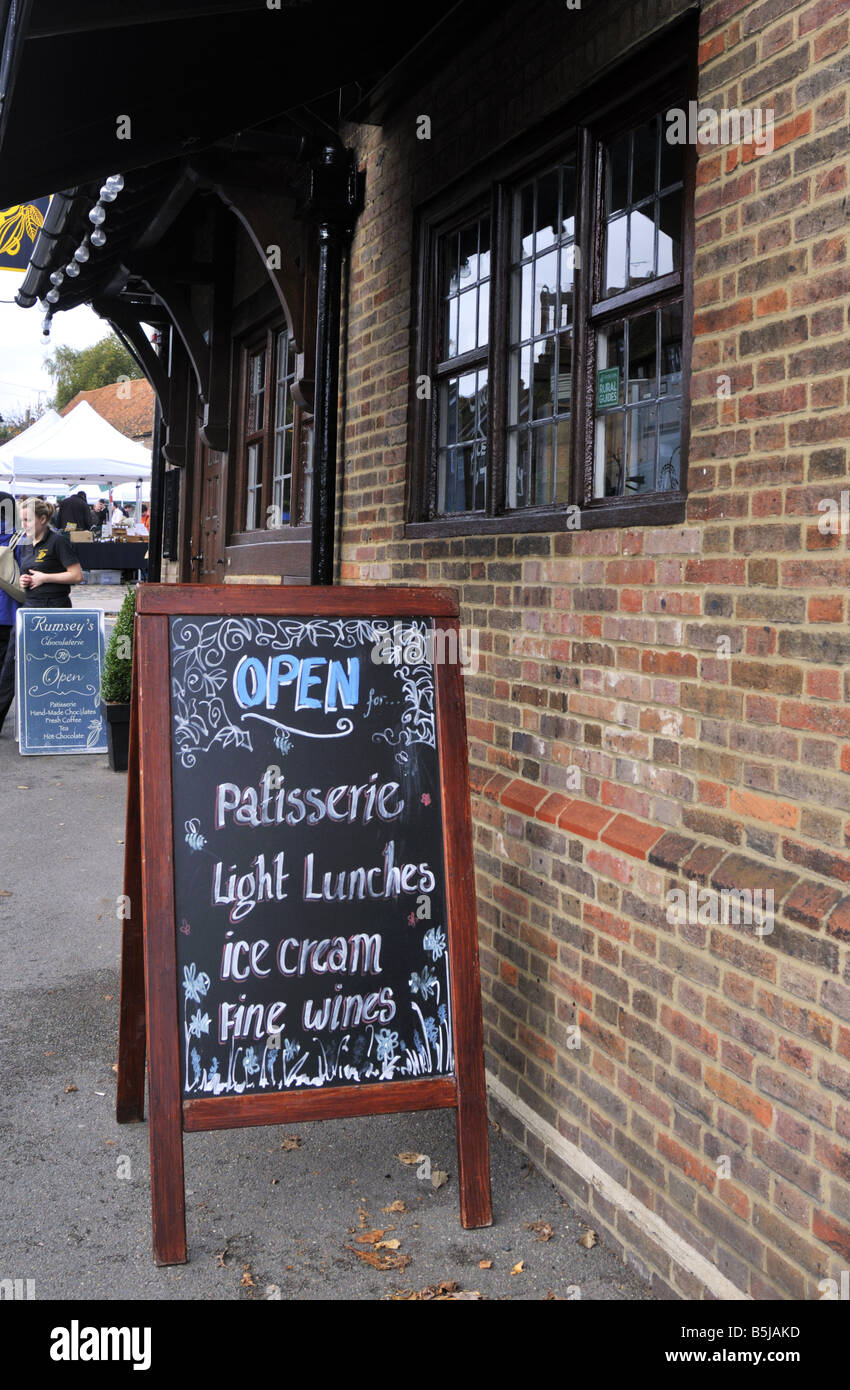 OPEN for...
Patisserie
Light Lunches
ice cream
Fine wines
Rumsey's
Chocolaterie
Open
Patisserie
Hand-Made Chocolates
Fresh Coffee
Tea
Hot Chocolate
RURAL
GUIDES
a
alamy
alamy
Image ID: B5JAKD
www.alamy.com